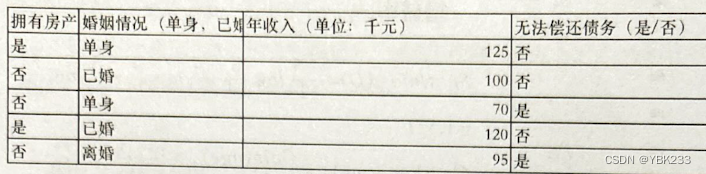 拥有房产 婚姻情况（单身，已婚 年收入（单位：千元） 无法偿还债务（是/否）
是 单身 125 否
否 已婚 100 否
否 单身 70 是
是 已婚 120 否
否 离婚 95 是
CSDN @YBK233